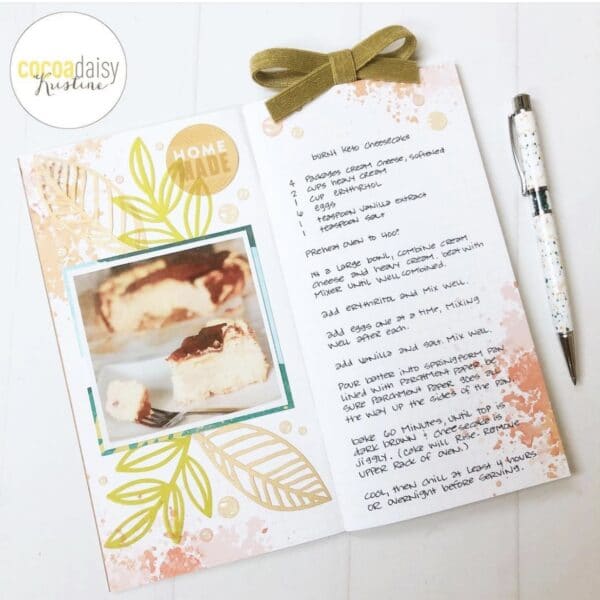 cocoadaisy
Kristine
HOME
MADE
BURNT KETO CHEESECAKE
4 PACKAGES CREAM CHEESE, SOFTENED
2 CUPS HEAVY CREAM
1 CUP ERYTHRITOL
6 EGGS
1 TEASPOON VANILLA EXTRACT
1 TEASPOON SALT
PREHEAT OVEN TO 400°
IN A LARGE BOWL, COMBINE CREAM
CHEESE AND HEAVY CREAM. BEAT WITH
MIXER UNTIL WELL COMBINED.
ADD ERYTHRITOL AND MIX WELL.
ADD EGGS ONE AT A TIME, MIXING
WELL AFTER EACH.
ADD VANILLA AND SALT. MIX WELL.
POUR BATTER INTO SPRINGFORM PAN
LINED WITH PARCHMENT PAPER. BE
SURE PARCHMENT PAPER GOES ALL
THE WAY UP THE SIDES OF THE PAN.
BAKE 60 MINUTES, UNTIL TOP IS
DARK BROWN + CHEESECAKE IS
JIGGLY. (CAKE WILL RISE. REMOVE
UPPER RACK OF OVEN.)
COOL, THEN CHILL AT LEAST 4 HOURS
OR OVERNIGHT BEFORE SERVING.